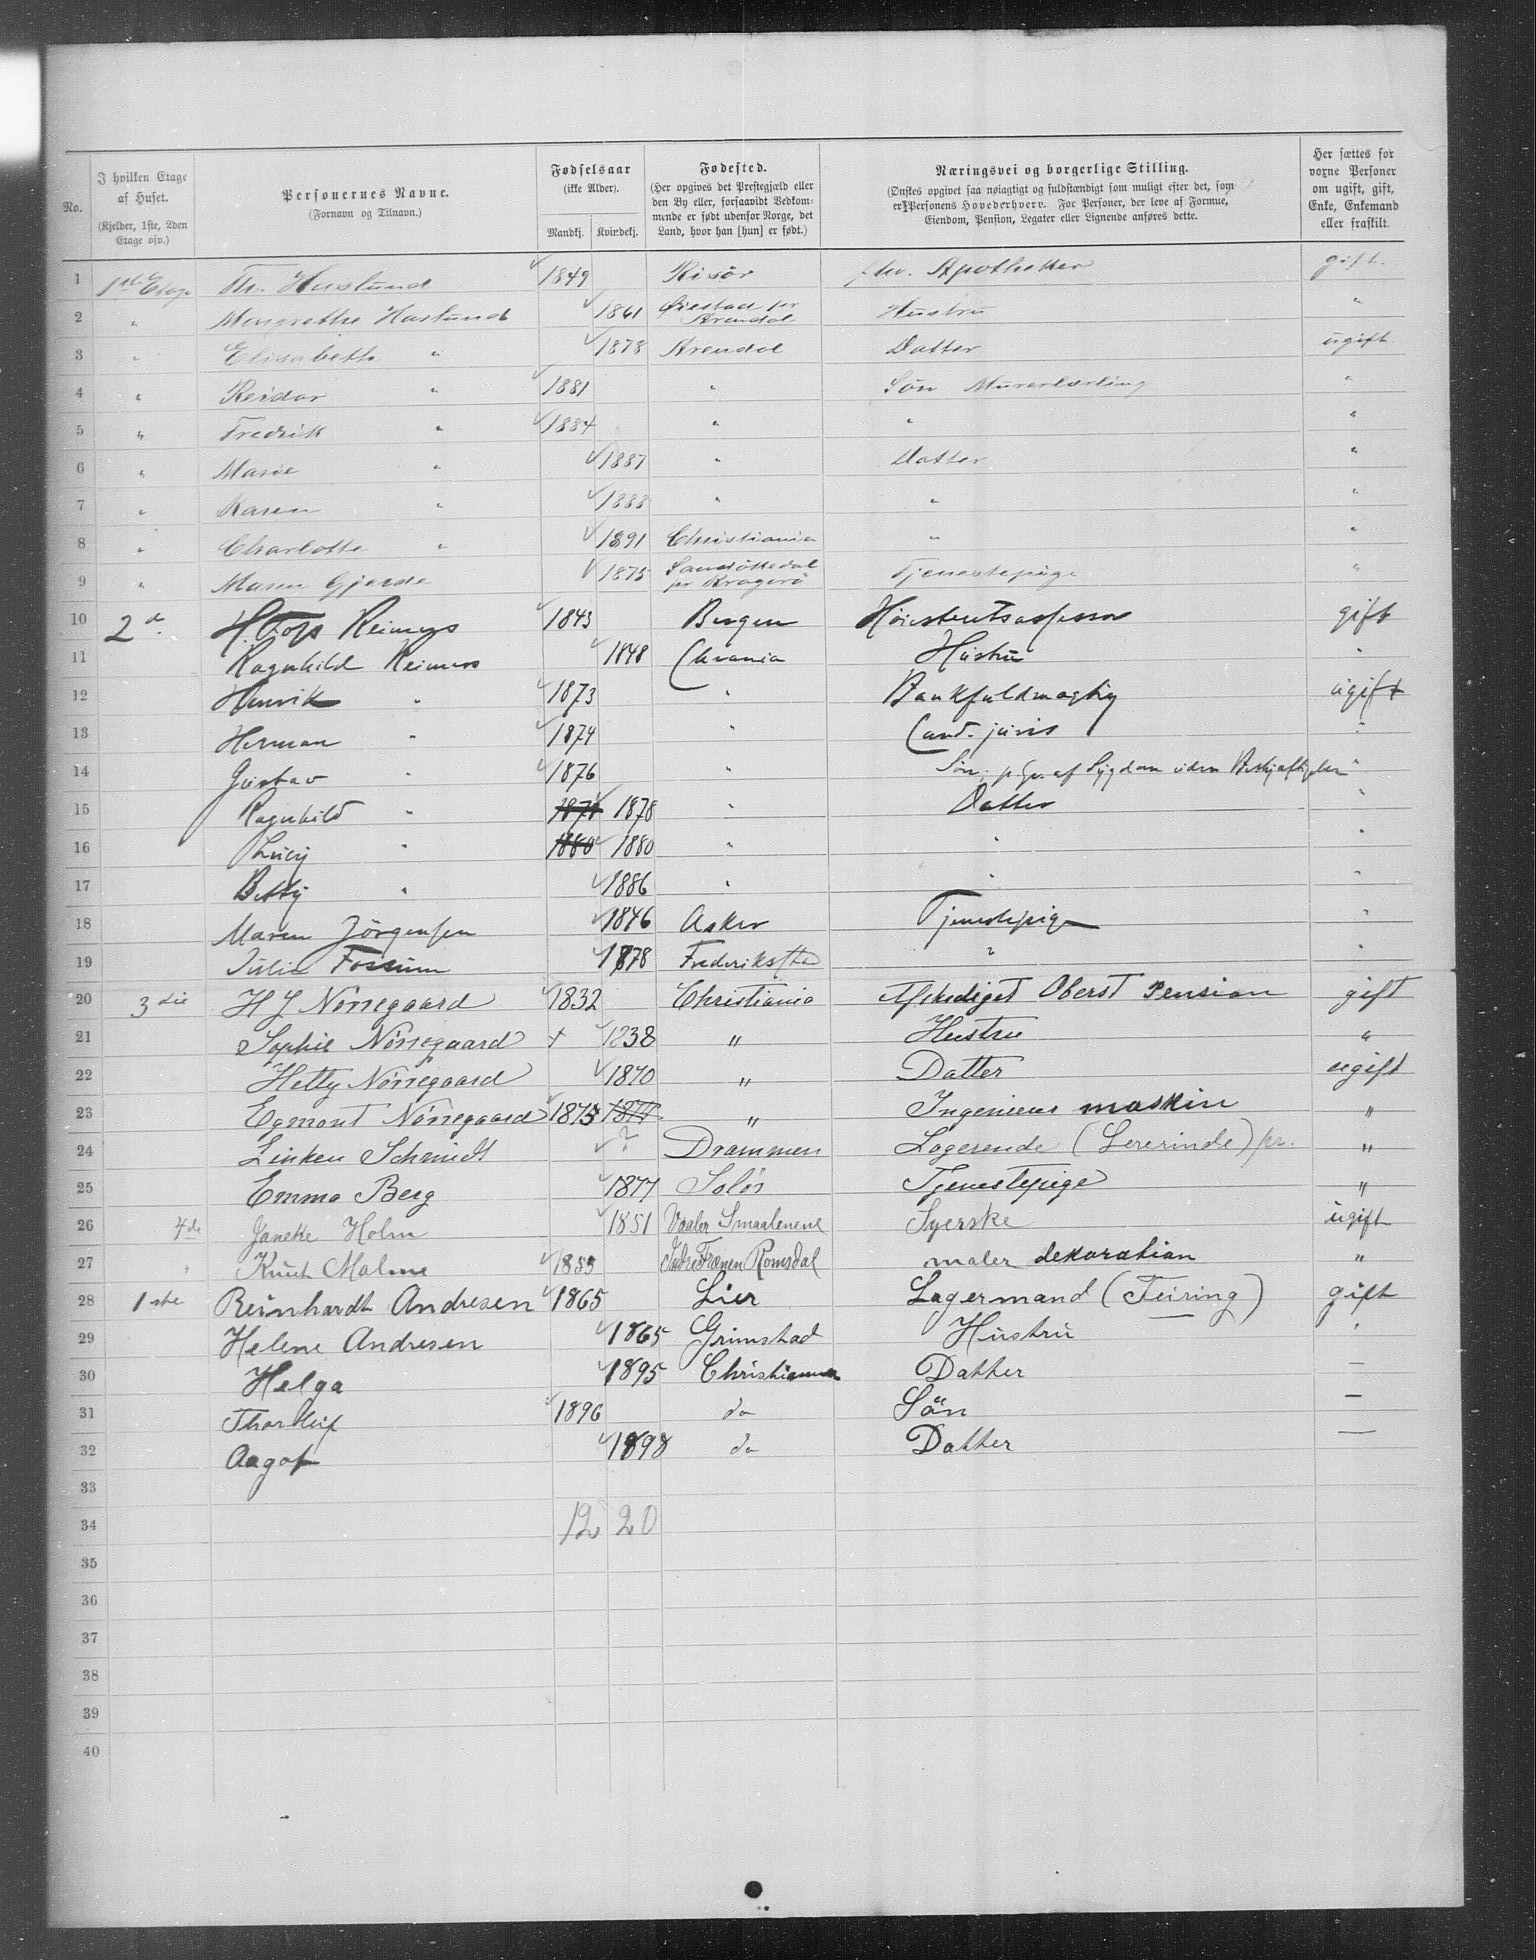 No. | I hvilken Etage af Huset. (Kjelder, 1ste, 2den Etage osv.) | Personernes Navne. (Fornavn og Tilnavn.) | Fødselsaar (ikke Alder). Mandkj. Kvindekj. | Fødested. (Her opgives det Prestegjæld eller den By eller, forsaavidt Vedkommende er født udenfor Norge, det Land, hvor han [hun] er født.) | Næringsvei og borgerlige Stilling. (Ønskes opgivet saa nøiagtigt og fuldstændigt som muligt efter det, som er Personens Hovederhverv. For Personer, der leve af Formue, Eiendom, Pension, Legater eller Lignende anføres dette. | Her sættes for voxne Personer om ugift, gift, Enke, Enkemand eller fraskilt.
1 1ste Etage Th. Haslund 1849 Risör Apotheker gift.
2 " Margrethe Haslund 1861 Øiestad pr Arendal Hustru "
3 " Elisabeth " 1878 Arendal Datter ugift
4 " Reidar " 1881 " Sön Murerlærling "
5 " Fredrik " 1884 " " "
6 " Marie " 1887 " Datter "
7 " Karen " 1888 " " "
8 " Charlotte " 1891 Christiania " "
9 " Maren Gjerde 1875 Sandökedal pr Kragerö Tjenestepige "
10 2d. Reimers 1843 Bergen Höiesteretsassessor gift
11 Ragnhild Reimers 1848 Chrania Hustru "
12 Henrik " 1873 " Bankfuldmægtig ugift
13 Herman " 1874 " Cand. juris "
14 Gustav " 1876 " Sön, p. Gr. af Sygdom uden Beskjæftigelse "
15 Ragnhild " 1878 1878 " Datter "
16 Lucy " 1880 1880 " " "
17 Betty " 1886 " " "
18 Maren Jörgensen 1846 Asker Tjenestepige "
19 Julia Fossum 1878 Frederiksstad " "
20 3die H J Nörregaard 1832 Christiania Afskediget Oberst Pension gift
21 Sophie Nörregaard + 1838 " Hustru "
22 Hetty Nörregaard 1870 " Datter ugift
23 Egmont Nörregaard 1875 1877 " Ingeniør maskin "
24 Linken Schmidt ? Drammen Logerende (Lererinde) pr. "
25 Emma Berg 1877 Solör Tjenestepige "
26 4de Janeke Holm 1851 Vaaler Smaalenene Syerske ugift
27 " Knut Malme 1855 Indre Frænen Romsdal maler dekoration "
28 1ste Reinhardt Andresen 1865 Lier Lagermand (Feiring) gift
29 Helene Andresen 1865 Grimstad Hustru "
30 Helga 1895 Christiania Datter —
31 Thorleif 1896 do Sön —
32 Aagot 1898 do Datter —
33
34 12 20
35
36
37
38
39
40